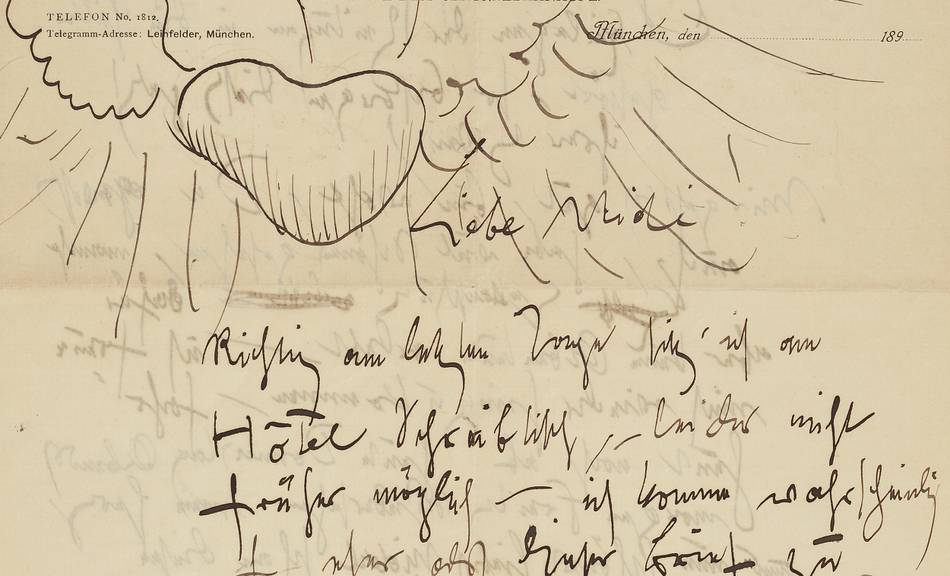 TELEFON No. 1812.
Telegramm-Adresse: Leinfelder, München.
München, den 189
Liebe Midi
Richtig am letzten Tage sitz' ich am
Hôtel Schreibtisch, – leider nicht
früher möglich – ich komme wahrscheinlich
eher als dieser Brief zu